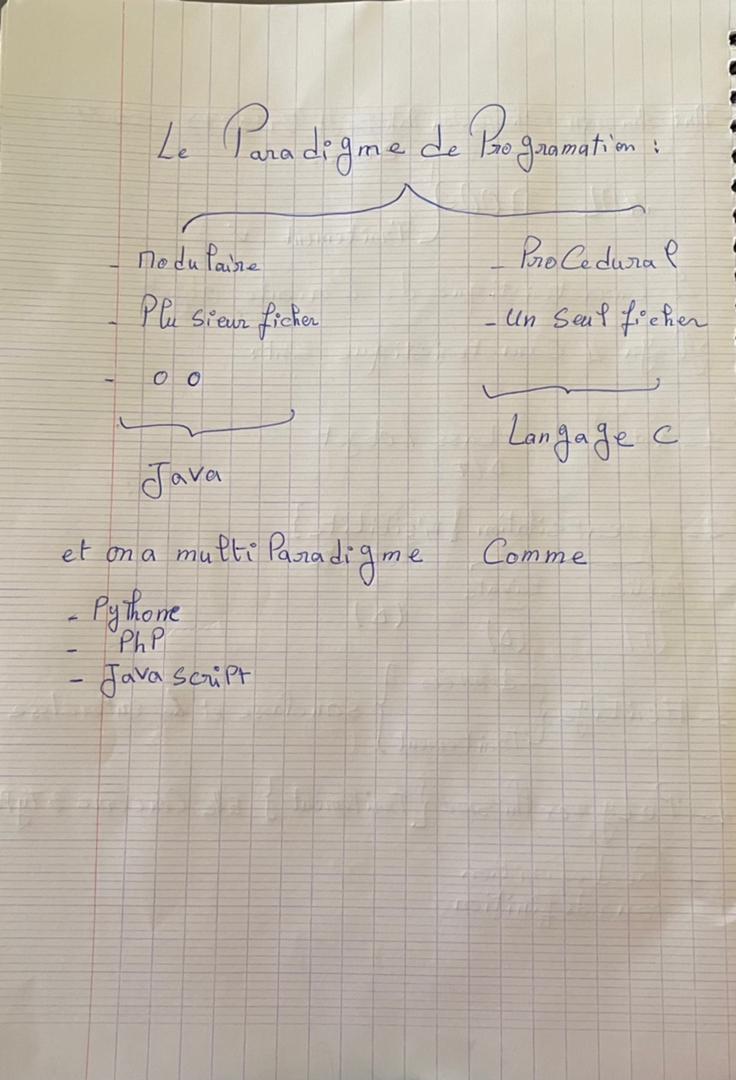 Le Paradigme de Programation :
- Modulaire
- Plu sieur ficher
- O O
Java
- ProCedural
- Un seul ficher
Langage C
et on a multi Paradigme Comme
- Pythone
- PhP
- Java script